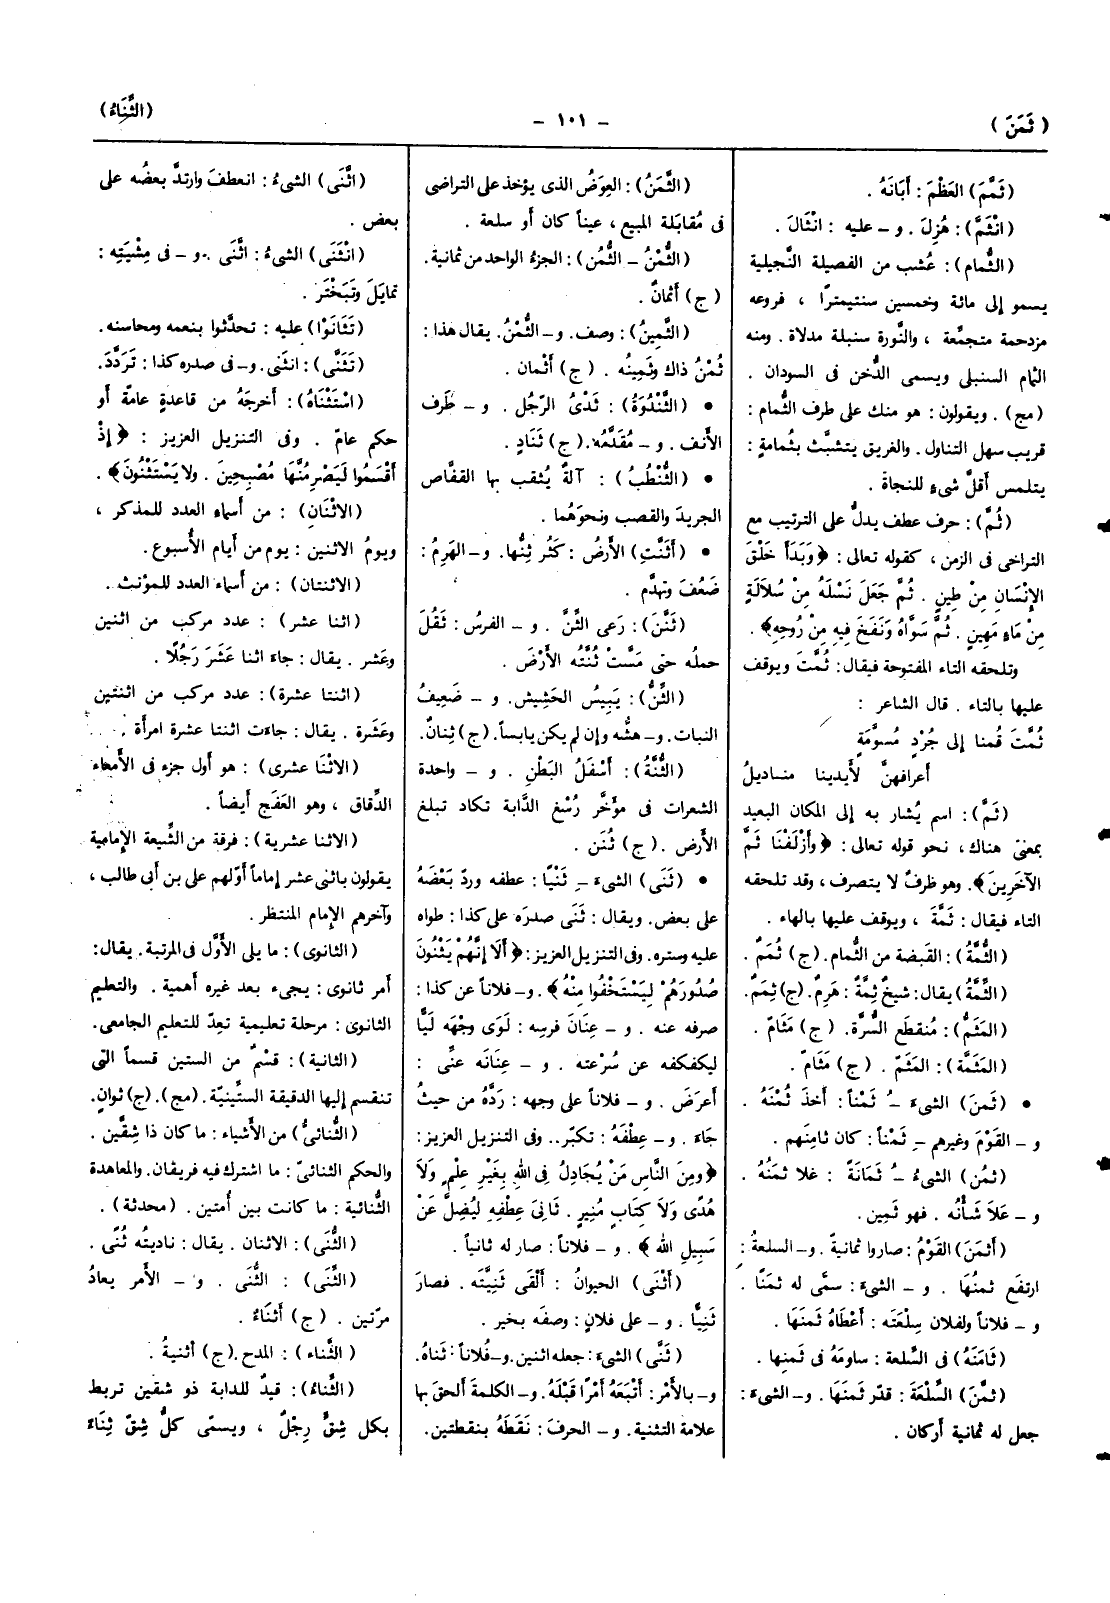 ( ثَمَنَ )
- ١٠١ -
(الثَّنَاءُ)
(ثَمَّمَ) العَظْمَ : أَبَانَهُ .
(انْثَمَّ): هُزِلَ . و - عليه : انْثَالَ .
(الثُّمام) : عُشب من الفصيلة النَّجيلية
يسمو إلى مائة وخمسين سنتيمترًا ، فروعه
مزدحمة متجمِّعة ، والنَّورة سنبلة مدلاة . ومنه
الثمام السنبلى ويسمى الدُّخن فى السودان .
(مج) . ويقولون : هو منك على طرف الثُّمام :
قريب سهل التناول . والغريق يتشبَّث بثُمامةٍ :
يتلمس أَقلَّ شىءٍ للنجاة .
(ثُمَّ) : حرف عطف يدلُّ على الترتيب مع
التراخى فى الزمن ، كقوله تعالى : ﴿ وَبَدَأَ خَلْقَ
الإِنْسَانِ مِنْ طِينٍ . ثُمَّ جَعَلَ نَسْلَهُ مِنْ سُلاَلَةٍ
مِنْ مَاءٍ مَهِينٍ . ثُمَّ سَوَّاهُ وَنَفَخَ فِيهِ مِنْ رُوحِهِ﴾ .
وتلحقه التاء المفتوحة فيقال : ثُمَّتَ ويوقف
عليها بالتاء . قال الشاعر :
ثُمَّتَ قُمنا إلى جُرْدٍ مُسوَّمَةٍ
أَعرافهنَّ لأَيدينا منـاديلُ
(ثَمَّ) : اسم يُشار به إلى المكان البعيد
بمعنى هناك ، نحو قوله تعالى : ﴿ وأَزْلَفْنَا ثَمَّ
الآخَرِينَ ﴾. وهو ظرفٌ لا يتصرف ، وقد تلحقه
التاء فيقال : ثَمَّةَ ، ويوقف عليها بالهاء .
(الثُّمَّةُ) : القَبضة من الثُّمام. (ج) ثُمَمٌ .
(الثِّمَّةُ) يقال: شيخٌ ثِمَّةٌ : هَرِمٌ. (ج) ثِمَمٌ.
(المَثَمُّ) : مُنقطَع السُّرَّة. (ج) مَثَامّ .
(المَثَمَّة) : المَثَمّ . (ج) مَثَامّ .
• (ثَمَنَ) الشىءَ ـُ ثَمْناً : أَخذَ ثُمْنَهُ .
و - القَوْمَ وغيرهم ـِ ثَمْناً : كان ثامِنَهم .
(ثَمُن) الشىءُ ـُ ثَمَانَةً : غلا ثمَنُهُ .
و - عَلاَ شَأْنُه . فهو ثَمِين .
(أَثمَنَ) القَوْمُ : صاروا ثمانيةً . و- السلعةُ :
ارتفَع ثمنُهَا . و - الشىءَ : سمَّى له ثمَنًا .
و - فلاناً ولفلان سِلْعَته : أَعْطَاهُ ثَمنَهَا .
(ثَامَنَهُ) فى السِّلعة : ساومَهُ فى ثَمنِها .
(ثمَّنَ) السِّلْعَةَ : قدَّر ثَمنَهَا . و- الشىءَ :
جعل له ثمانية أركان .
(الثَّمَنُ) : العِوَضُ الذى يؤخذ على التراضى
فى مُقابَلة المبيع ، عيناً كان أَو سلعة .
(الثُّمْنُ - الثُّمُن) : الجزءُ الواحد من ثمانية .
(ج) أَثمانٌ .
(الثَّمِينُ) : وصف. و - الثُّمْنُ. يقال هذا :
ثُمْنُ ذاك وثَمِينُه . (ج) أَثْمان .
• (الثُّنْدُوَةُ) : ثَدْىُ الرّجُل . و - طَرف
الأَنف . و - مُقَدَّمُه. (ج) ثَنَادٍ .
• (الثُّنْطُبُ) : آلةٌ يُثقب بها القفَّاص
الجريدَ والقصب ونحوَهُما .
• (أَثَنَّتِ) الأَرضُ : كَثُر ثِنُّها. و - الهَرِمُ :
ضَعُفَ وتهدَّم .
(ثَنَّنَ) : رَعى الثِّنَّ . و - الفرسُ : ثَقُلَ
حملُه حتى مَسَّتْ ثُنَّتُه الأَرْضَ .
(الثِّنُّ) : يَبِيسُ الحَشِيش. و - ضَعِيفُ
النبات. و- هشُّه وإن لم يكن يابساً. (ج) ثِنانٌ.
(الثُّنَّةُ) : أَسْفَلُ البَطْنِ . و - واحدة
الشعرات فى مؤخَّر رُسْغ الدَّابة تكاد تبلغ
الأَرض . (ج) ثُنَن .
• (ثَنَى) الشىءَ ـِ ثَنْيًا : عطفه وردّ بَعْضَهُ
على بعض. ويقال : ثَنَى صدرَه على كذا : طواه
عليه وستره. وفى التنزيل العزيز : ﴿ أَلَا إِنَّهُمْ يَثْنُونَ
صُدُورَهُمْ لِيَسْتَخْفُوا مِنْهُ ﴾ . و- فلاناً عن كذا :
صرفه عنه . و - عِنَانَ فرسِه : لَوَى وجْهَه ليًّا
ليكفكفه عن سُرْعته . و - عِنَانَه عنِّى :
أَعرَضَ . و - فلاناً على وجهه : رَدَّهُ من حيثُ
جَاءَ . و - عِطْفَهُ : تكبَّر.. وفى التنزيل العزيز :
﴿ ومِنَ النَّاسِ مَنْ يُجَادِلُ فِى اللهِ بِغَيْرِ عِلْمٍ وَلَا
هُدًى وَلَا كِتَابٍ مُنِيرٍ . ثَانِىَ عِطْفِهِ لِيُضِلَّ عَنْ
سَبِيلِ اللهِ ﴾ . و - فلاناً : صار له ثانياً .
(أَثْنَى) الحيوانُ : أَلْقَى ثَنِيَّتَه . فصارَ
ثَنِيًّا . و - على فلانٍ : وصفَه بخير .
(ثَنَّى) الشىءَ : جعله اثنين. و- فُلاناً : ثَناهُ.
و- بالأَمْرِ : أَتْبَعَهُ أَمْرًا قَبْلَهُ. و- الكلمةَ أَلحقَ بها
علامة التثنية. و - الحرفَ : نَقَطَهُ بنقطتين.
(اثَّنَى) الشىءُ : انعطفَ وارتدَّ بعضُه على
بعض .
(انْثَنَى) الشىءُ : اثَّنَى . و - فى مِشْيَتِه :
تمايَلَ وتَبَخْتَر .
(تَثَانَوْا) عليه : تحدَّثوا بنعمه ومحاسنه.
(تَثَنَّى) : انثنى. و- فى صدره كذا : تَرَدَّدَ.
(اسْتَثْنَاهُ) : أَخرجَهُ من قاعدةٍ عامةٍ أَو
حكم عامّ . وفى التنزيل العزيز : ﴿ إِذْ
أَقْسَمُوا لَيَصْرِمُنَّهَا مُصْبِحِينَ . ولا يَسْتَثْنُونَ﴾ .
(الاثْنَانِ) : من أَسماء العدد للمذكر ،
ويومُ الاثنين : يوم من أَيام الأُسبوع .
(الاثنتان) : من أَسماء العدد للمؤنث .
(اثنا عشر) : عدد مركب من اثنين
وعَشر . يقال : جاءَ اثنا عَشَرَ رَجُلًا .
(اثنتا عشرة) : عدد مركب من اثنتين
وعَشَرة . يقال : جاءَت اثنتا عشرة امرأَة .
(الاثْنَا عشرى) : هو أَول جزء فى الأَمعاء
الدِّقاق ، وهو العَفَج أَيضاً .
(الاثنا عشرية) : فرقة من الشِّيعة الإِمامية
يقولون باثنى عشر إماماً أَوّلهم على بن أَبى طالب ،
وآخرهم الإِمام المنتظر .
(الثانوى) : ما يلى الأَوَّل فى المرتبة. يقال :
أَمر ثانوى : يجىء بعد غيره أَهمية . والتعليم
الثانوىّ : مرحلة تعليمية تُعِدّ للتعليم الجامعى.
(الثانية) : قِسْمٌ من الستين قسماً التى
تنقسم إليها الدقيقة الستِّينيّة . (مج). (ج) ثوانٍ.
(الثُّنائىُّ) من الأَشياء : ما كان ذا شِقَّين .
والحكم الثنائىّ : ما اشترك فيه فريقان. والمعاهدة
الثُّنائية : ما كانت بين أُمتين . (محدثة) .
(الثُّنَى) : الاثنان . يقال : ناديتُه ثُنًى .
(الثِّنَى) : الثُّنَى . و - الأَمر يعادُ
مرّتين . (ج) أَثْنَاءٌ .
(الثَّناء) : المدح . (ج) أَثنيةٌ .
(الثِّناءُ) : قيدٌ للدابة ذو شقين تربط
بكل شِقٍّ رِجْلٌ ، ويسمّى كلُّ شِقّ ثِنَاءً